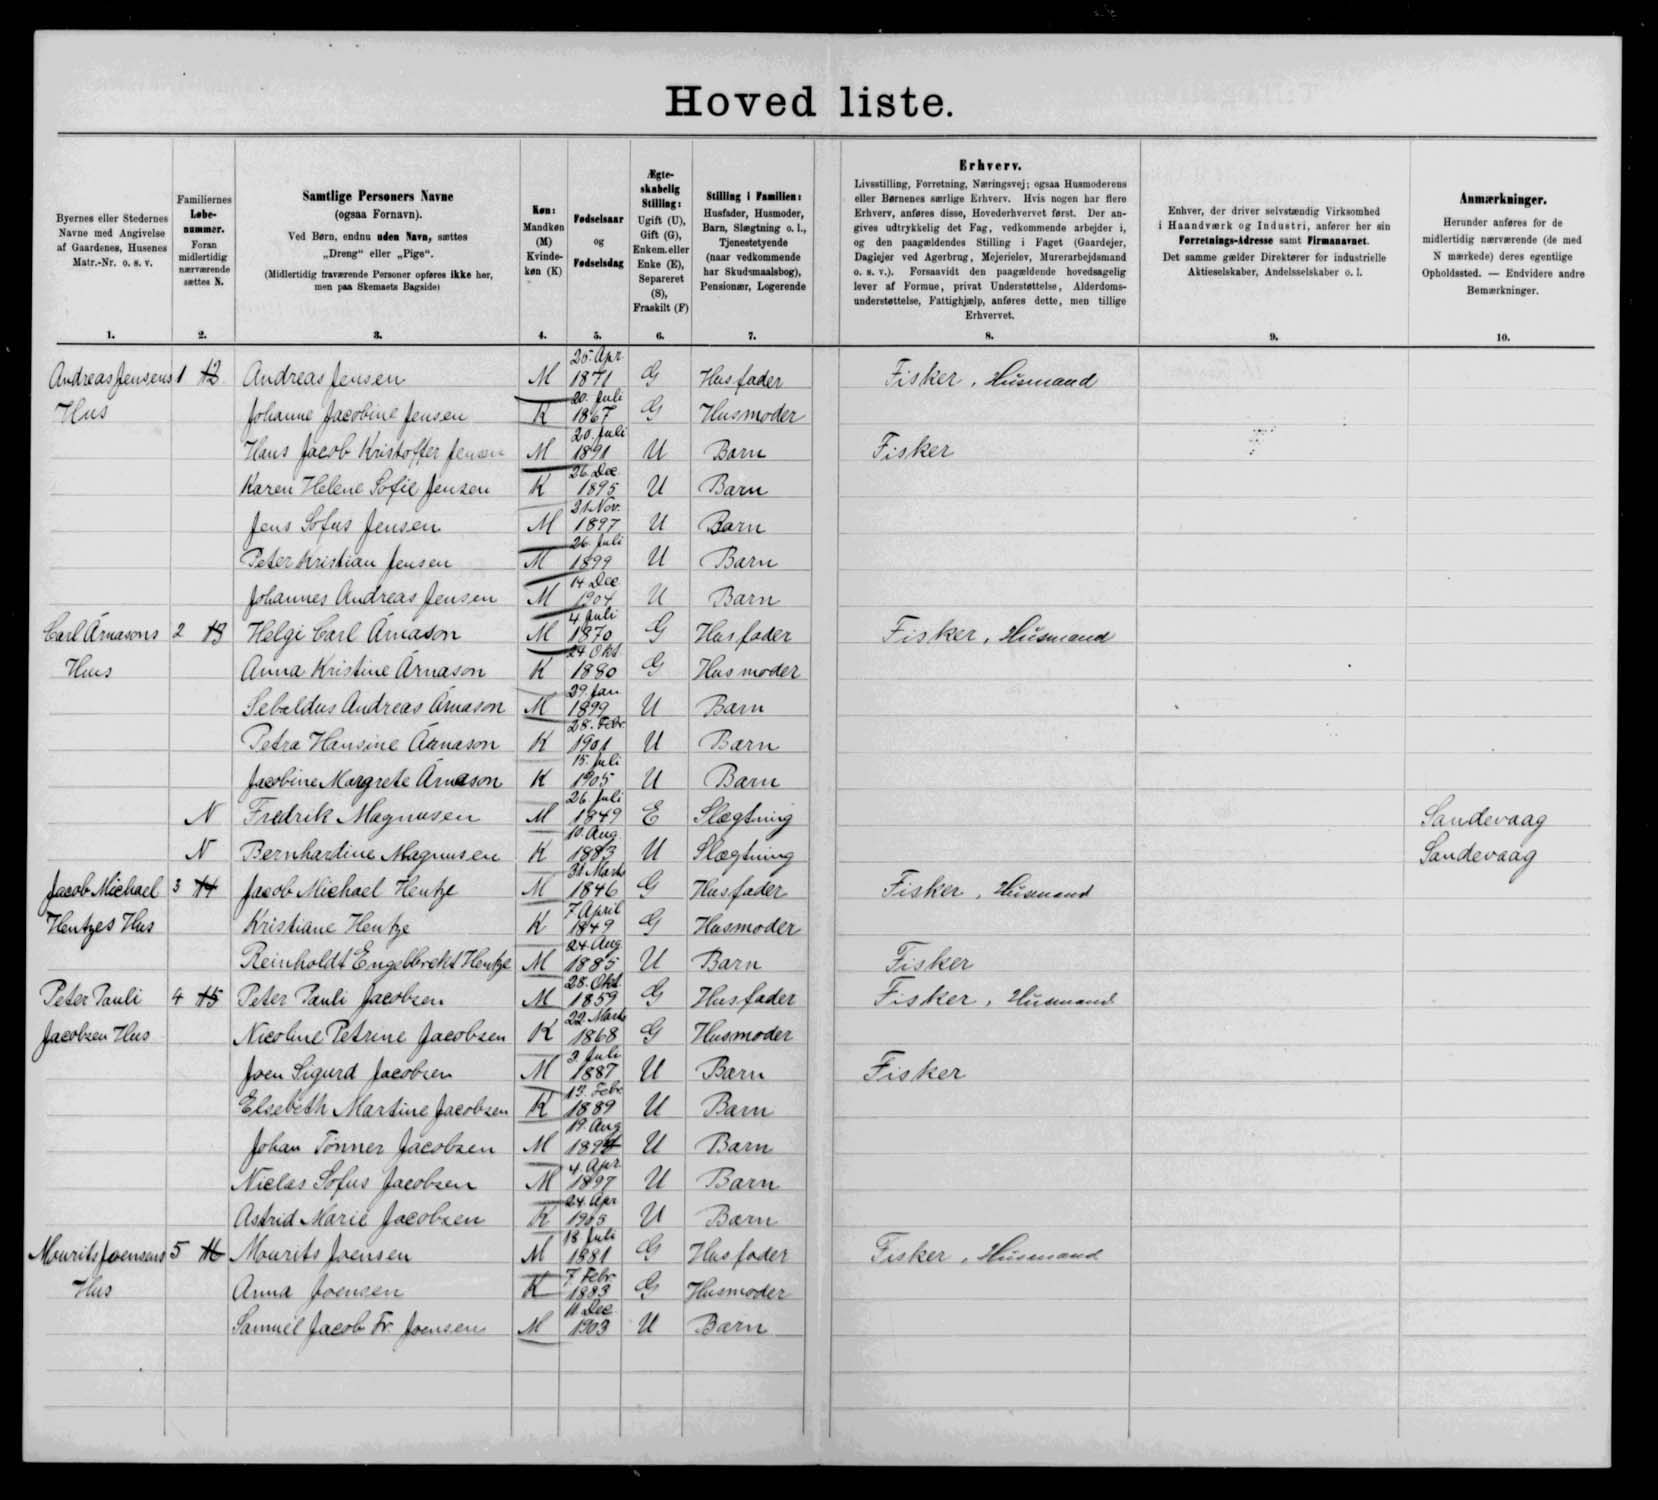 Hoved liste.
Byernes eller Stedernes Navne med Angivelse af Gaardenes, Husenes Matr.-Nr. o. s. v.
Familiernes Løbe-nummer. Foran midlertidig nærværende sættes N.
Samtlige Personers Navne (ogsaa Fornavn). Ved Børn, endnu uden Navn, sættes „Dreng" eller „Pige". (Midlertidig fraværende Personer opføres ikke her, men paa Skemaets Bagside)
Køn: Mandkøn (M) Kvinde-køn (K)
Fødselsaar og Fødselsdag
Ægte-skabelig Stilling: Ugift (U), Gift (G), Enkem. eller Enke (E), Separeret (S), Fraskilt (F)
Stilling i Familien: Husfader, Husmoder, Barn, Slægtning o. l., Tjenestetyende (naar vedkommende har Skudsmaalsbog), Pensionær, Logerende
Erhverv. Livsstilling, Forretning, Næringsvej; ogsaa Husmoderens eller Børnenes særlige Erhverv. Hvis nogen har flere Erhverv, anføres disse, Hovederhvervet først. Der an-gives udtrykkelig det Fag, vedkommende arbejder i, og den paagældendes Stilling i Faget (Gaardejer, Daglejer ved Agerbrug, Mejerielev, Murerarbejdsmand o. s. v.). Forsaavidt den paagældende hovedsagelig lever af Formue, privat Understøttelse, Alderdoms-understøttelse, Fattighjælp, anføres dette, men tillige Erhvervet.
Enhver, der driver selvstændig Virksomhed i Haandværk og Industri, anfører her sin Forretnings-Adresse samt Firmanavnet. Det samme gælder Direktører for industrielle Aktieselskaber, Andelsselskaber o. l.
Anmærkninger. Herunder anføres for de midlertidig nærværende (de med N mærkede) deres egentlige Opholdssted. — Endvidere andre Bemærkninger.
1. 2. 3. 4. 5. 6. 7. 8. 9. 10.
Andreas Jensens 1 12 Andreas Jensen M 25. Apr. 1871 G Husfader Fisker, Husmand
Hus Johanne Jacobine Jensen K 20. Juli 1867 G Husmoder
Hans Jacob Kristoffer Jensen M 20. Juli 1891 U Barn Fisker
Karen Helene Sofie Jensen K 26. Dec. 1895 U Barn
Jens Sofus Jensen M 21. Nov. 1897 U Barn
Peter Kristian Jensen M 26. Juli 1899 U Barn
Johannes Andreas Jensen M 14 Dec. 1904 U Barn
Carl Árnasons 2 13 Helgi Carl Árnason M 4 Juli 1870 G Husfader Fisker, Husmand
Hus Anna Kristine Árnason K 24. Okt. 1880 G Husmoder
Sebaldus Andreas Árnason M 29. Jan 1899 U Barn
Petra Hansine Árnason K 28. Febr. 1901 U Barn
Jacobine Margrete Árnason K 15. Juli 1905 U Barn
N Fredrik Magnusen M 26. Juli 1849 E Slægtning Sandevaag
N Bernhardine Magnusen K 10. Aug. 1883 U Slægtning Sandevaag
Jacob Michael 3 14 Jacob Michael Hentze M 31 Marts 1846 G Husfader Fisker, Husmand
Hentzes Hus Kristiane Hentze K 7 April 1849 G Husmoder
Reinholdt Engelbrekt Hentze M 24. Aug. 1885 U Barn Fisker
Peter Pauli 4 15 Peter Pauli Jacobsen M 28. Okt. 1859 G Husfader Fisker, Husmand
Jacobsen Hus Nicoline Petrine Jacobsen K 22 Marts 1868 G Husmoder
Joen Sigurd Jacobsen M 2. Juli 1887 U Barn Fisker
Elsebeth Martine Jacobsen K 13. Febr 1889 U Barn
Johan Tönner Jacobsen M 19. Aug U Barn
Niclas Sofus Jacobsen M 4. Apr. 1897 U Barn
Astrid Marie Jacobsen K 24. Apr U Barn
Mourits Joensens 5 Mourits Joensen M 18 Juli 1881 G Husfader Fisker, Husmand
Hus Anna Joensen K 7. Febr. 1883 G Husmoder
Samuel Jacob Fr. Joensen M 11 Dec. 1903 U Barn